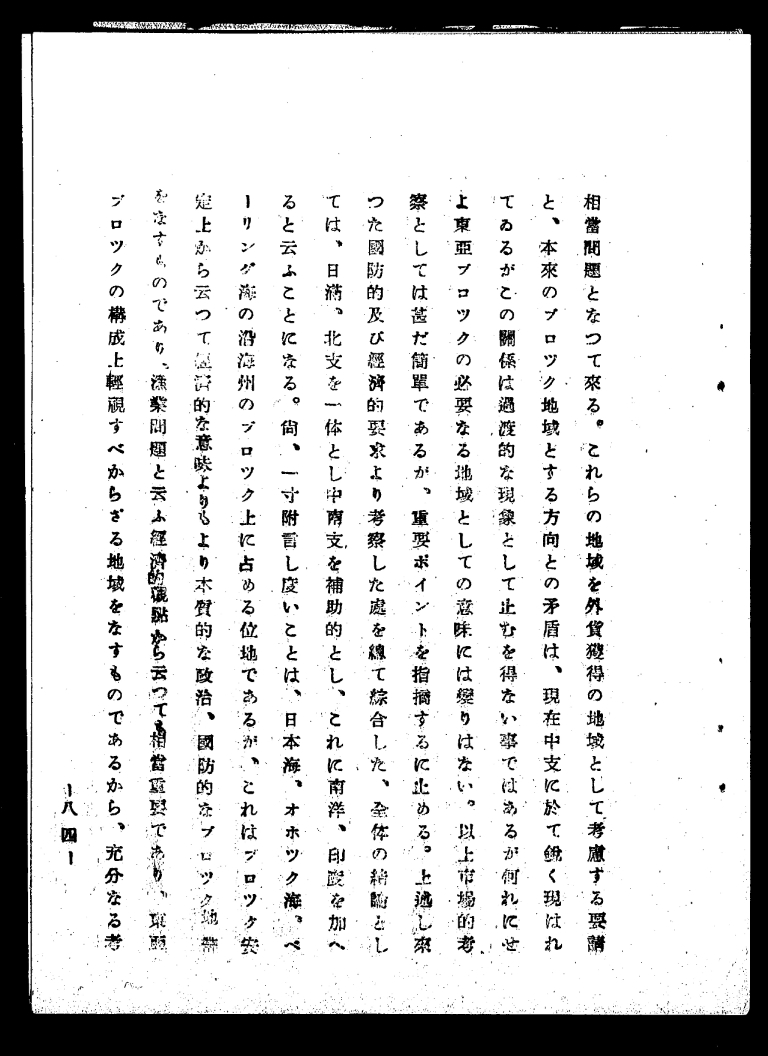 相當問題となつて來る。これらの地域を外貨獲得の地域として考慮する要請
と、本來のブロツク地域とする方向との矛盾は、現在中支に於て鋭く現はれ
てゐるがこの關係は過渡的な現象として止むを得ない事ではあるが何れにせ
よ東亞ブロツクの必要なる地域としての意味には變りはない。以上市場的考
察としては甚だ簡單であるが、重要ポイントを指摘するに止める。上述し來
つた國防的及び經濟的要求より考察した處を總て綜合した、全体の結論とし
ては、日滿、北支を一体とし中南支を補助的とし、これに南洋、印度を加へ
ると云ふことになる。尙、一寸附言し度いことは、日本海、オホツク海。ベ
ーリング海の沿海州のブロツク上に占める位地であるが、これはブロツク安
定上から云つて經濟的な意味よりもより本質的な政治、國防的なブロツク地帶
をなすものであり、漁業問題と云ふ經濟的觀點から云つても相當重要であり、東亞
ブロツクの構成上輕視すべからざる地域をなすものであるから、充分なる考
ー八四ー